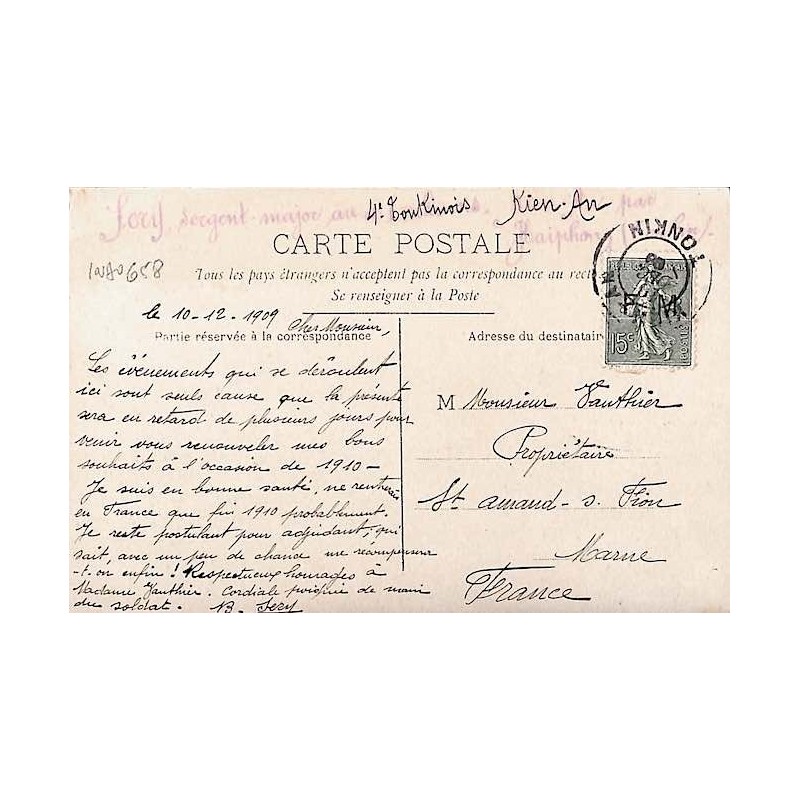 Sery, sergent-major au 4e Tonkinois Kien-An par
Haiphong
CARTE POSTALE
Tous les pays étrangers n'acceptent pas la correspondance au recto
Se renseigner à la Poste
658
TONKIN
F. M.
15c
le 10-12-1909
Cher Monsieur,
Partie réservée à la correspondance
Adresse du destinataire
Les événements qui se déroulent
ici sont seuls cause que la présente
sera en retard de plusieurs jours pour
venir vous renouveler mes bons
souhaits à l'occasion de 1910-
Je suis en bonne santé, ne rentrerai
en France que fin 1910 probablement.
Je reste postulant pour adjudant, qui
sait, avec un peu de chance me récompensera
-t-on enfin! Respectueux hommages à
Madame Vauthier. Cordiale poignée de main
du soldat. B. Sery
M Monsieur Vauthier
Propriétaire
St Amand-s. Fion
Marne
France